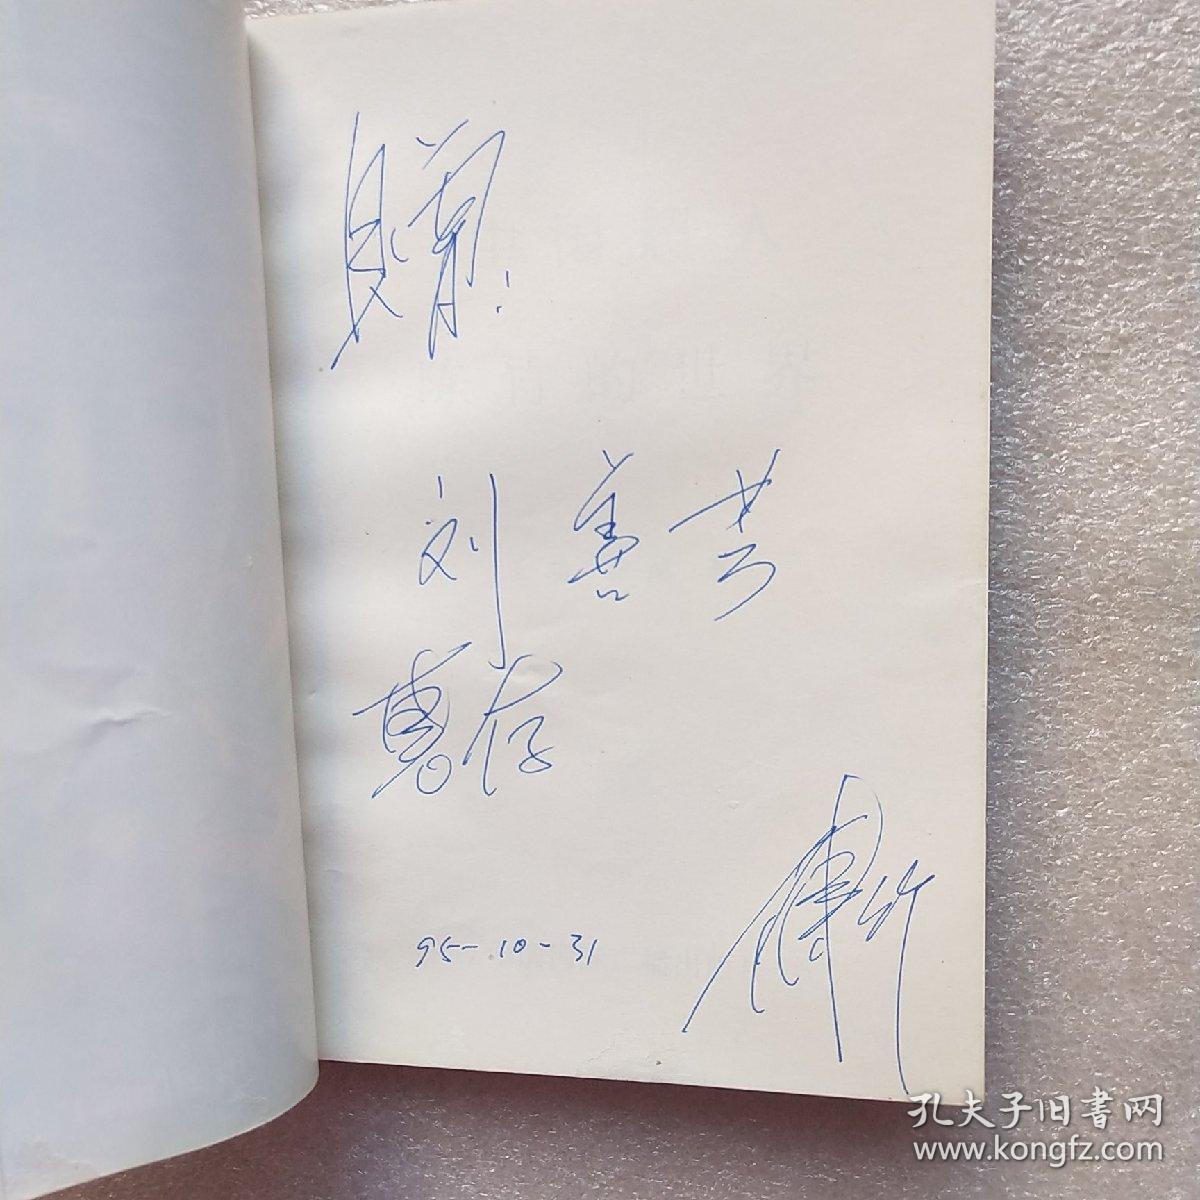 赠:
刘善芳
惠存
95-10-31
孔夫子旧書网
www.kongfz.com